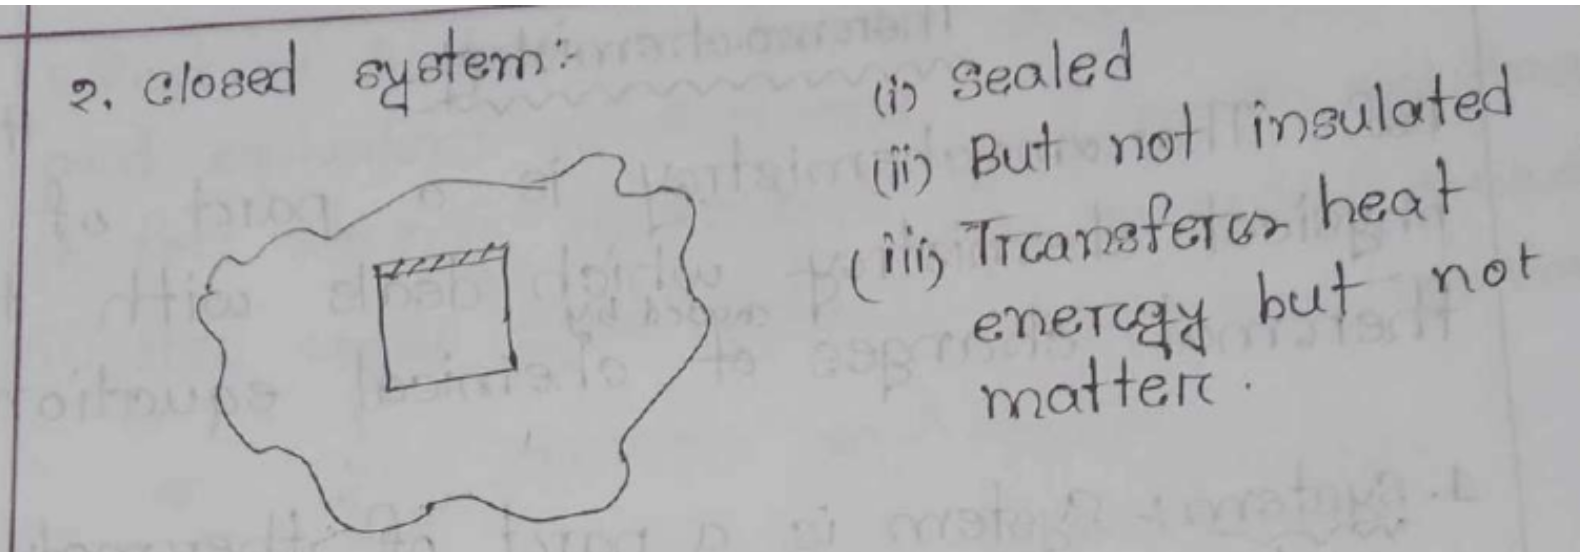 2. closed system:-
(i) Sealed
(ii) But not insulated
(iii) Transfer heat
energy but not
matter.